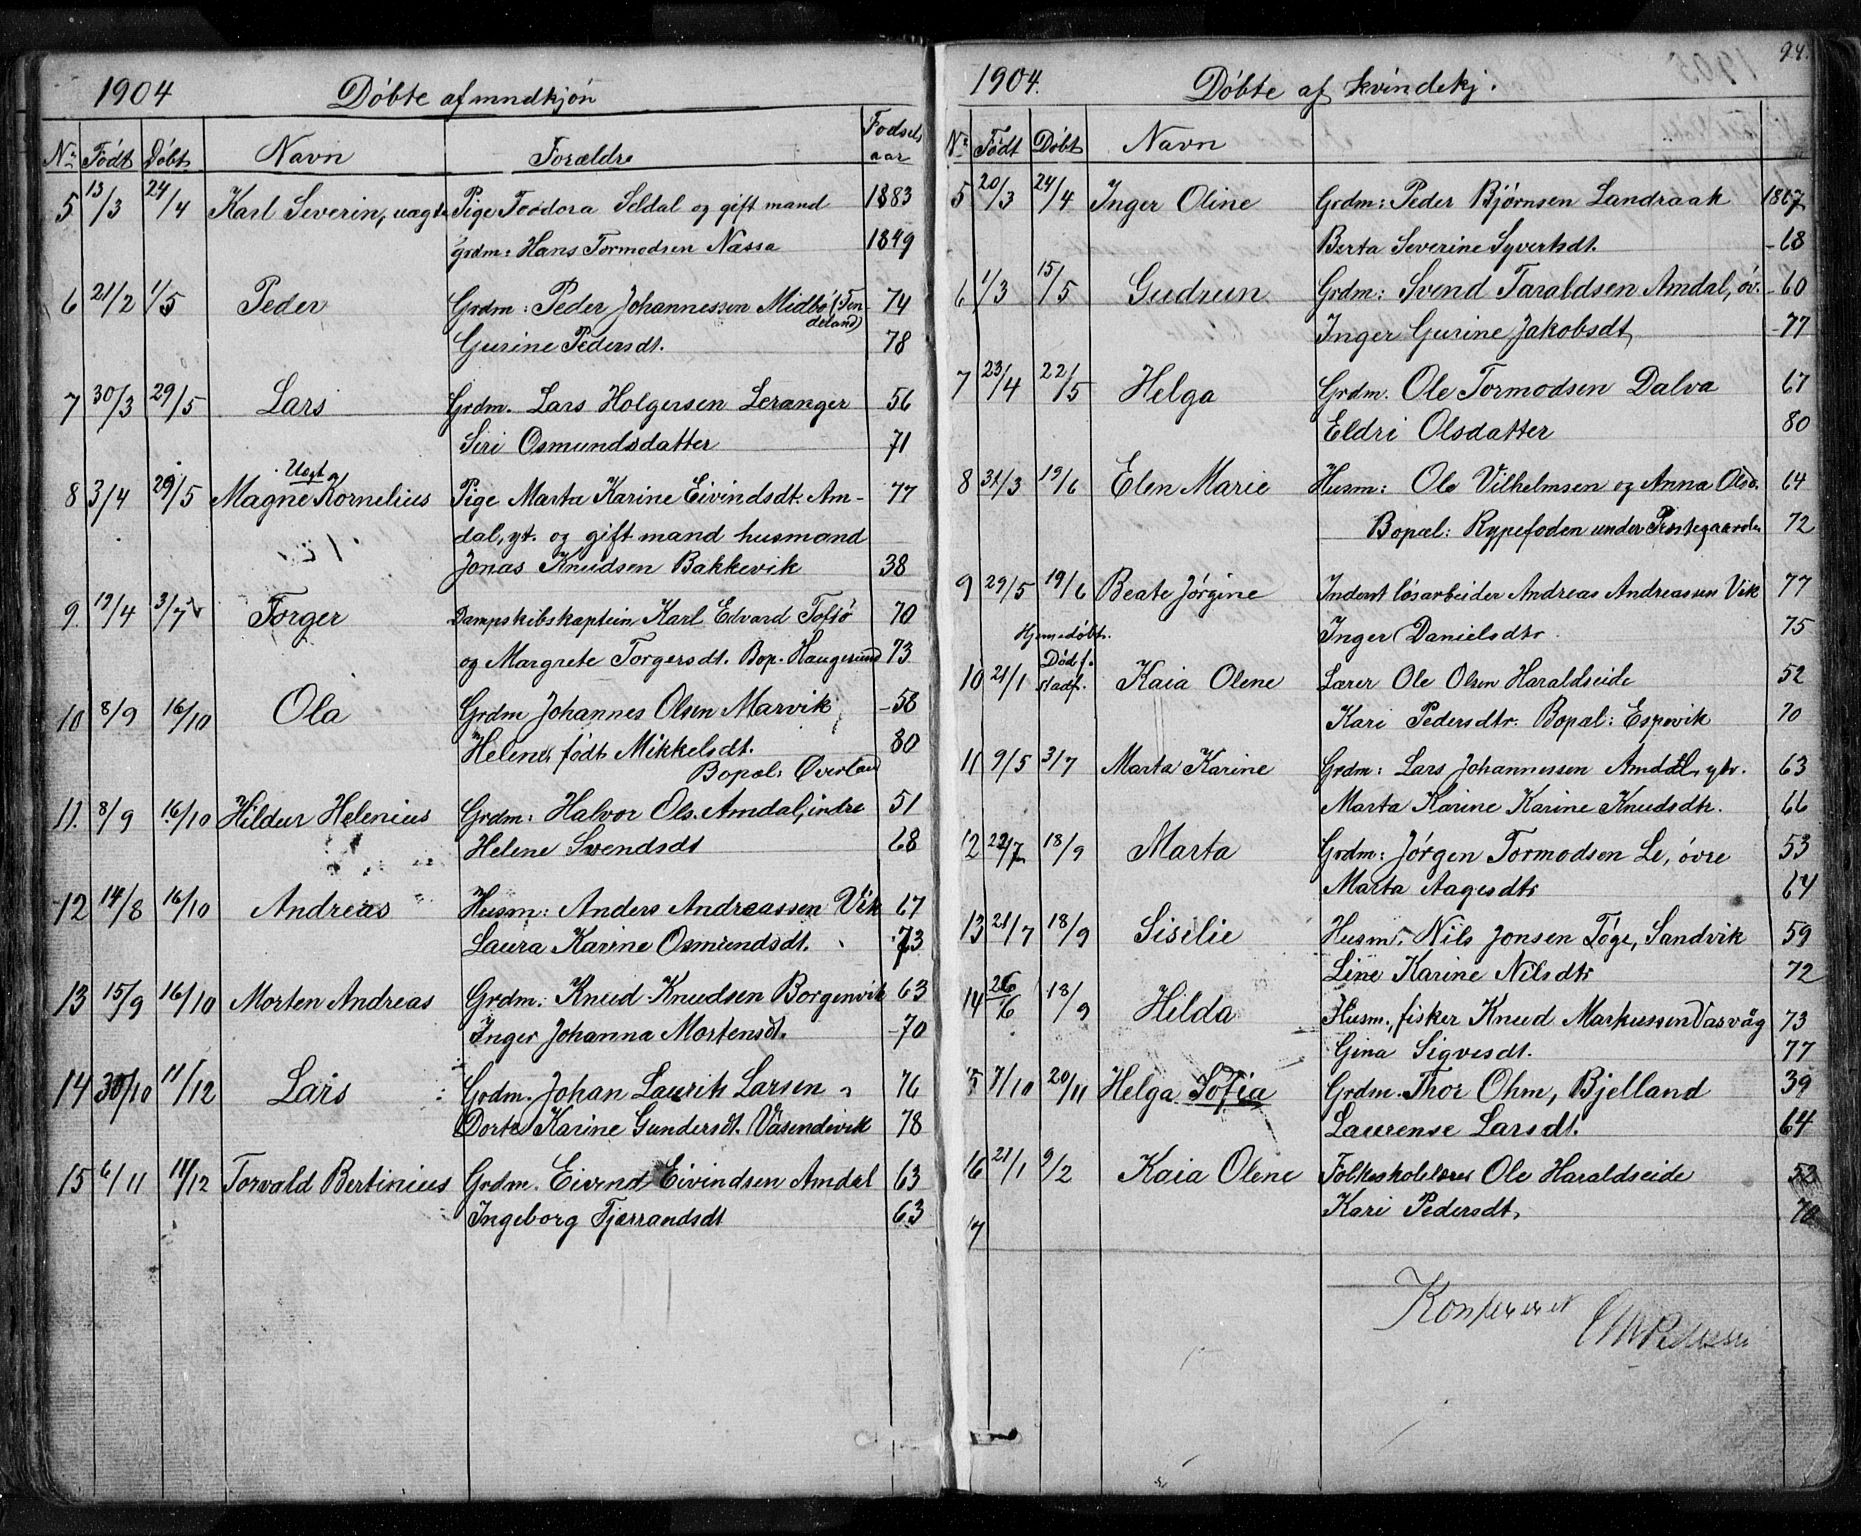 1904
Døbte af mndkjön
Nr. Født Døbt Navn Forældre Fødsels aar
5 13/3 24/4 Karl Severin, uægte Pige Teodora Seldal og gift mand 1883
grdm: Hans Tormodsen Næssa 1849
6 21/2 1/5 Peder Grdm: Peder Johannessen Midbö (Ten- 74
deland)
Gurine Pedersdt. 78
7 30/3 29/5 Lars Grdm. Lars Holgersen Leranger 56
Siri Osmundsdatter 71
Uegt
8 3/4 29/5 Magne Kornelius Pige Marta Karine Eivindsdt. Am- 77
dal, yt. og gift mand husmand
Jonas Knudsen Bakkevik 38
9. 19/4 3/7 Torger Dampskibskaptein Karl Edvard Toftö 70
og Margrete Torgersdt. Bop. Haugesund 73
10 8/9 16/10 Ola Grdm Johannes Olsen Marvik -58
Helene født Mikkelsdt. 80
Bopæl: Överland
11. 8/9 16/10 Hildur Helenius Grdm: Halvor Ols. Amdal, indre 51
Helene Svendsdt 68
12 14/8 16/10 Andreas Husm: Anders Andreassen Vik 67
Laura Karine Osmundsdt. 73
13 15/9 16/10 Morten Andreas Grdm: Knud Knudsen Borgenvik 63
Inger Johanna Mortensdt. -70
14 30/10 11/12 Lars Grdm. Johan Laurits Larsen 76
Dorte Karine Gundersdt. Vasendevik 78
15 6/11 11/12 Torvald Bertinius Grdm. Eivind Eivindsen Amdal 63
Ingeborg Tjerrandsdt 63
94.
1904.
Døbte af kvindekj.
Nr. Født Døbt Navn
5 20/3 24/4 Inger Oline Grdm: Peder Bjørnsen Landraak 1867
Berta Severine Syvertsdt. -68
6 1/3 15/5 Gudrun Grdm: Svend Taraldsen Amdal, öv. -60
Inger Gurine Jakobsdt, -77
7 23/4 22/5 Helga Grdm. Ole Tormodsen Dalva 67
Eldri Olsdatter 80
8 31/3 19/6 Elen Marie Husm: Ole Vilhelmsen og Anna Olsd. 64
Bopæl: Rypefoden under Prestegaarden 72
9 29/5 19/6 Beate Jørgine Inderst løsarbeider Andreas Andreassen Vik 77
Inger Danielsdtr. 75
Hjemmedøbt.
Død f.
10 21/1 stadf. Kaia Olene Lærer Ole Olsen Haraldseide 52
Kari Pedersdtr. Bopæl: Espevik 70
11 9/5 3/7 Marta Karine Grdm: Lars Johannessen Amdal, ytr. 63
Marta Karine Karine Knudsdtr. 66
12 22/7 18/9 Marta Grdm: Jörgen Tormodsen Le, övre 53
Marta Aagesdtr 64
13 21/7 18/9 Siselie Husm. Nils Jonsen Töge, Sandvik 59
Line Karine Nilsdtr 72
14 26/6 18/9 Hilda Husm., fisker Knud Markussen Vasvåg 73
Gina Sigvesdt. 77
15 7/10 20/11 Helga Sofia Grdm. Thor Ohm, Bjelland 39
Laurense Larsdt. 64
16 21/1 9/2 Kaia Olene Folkeskolelærer Ole Haraldseide 52
Kari Pedersdt, 70
17
Konfereret